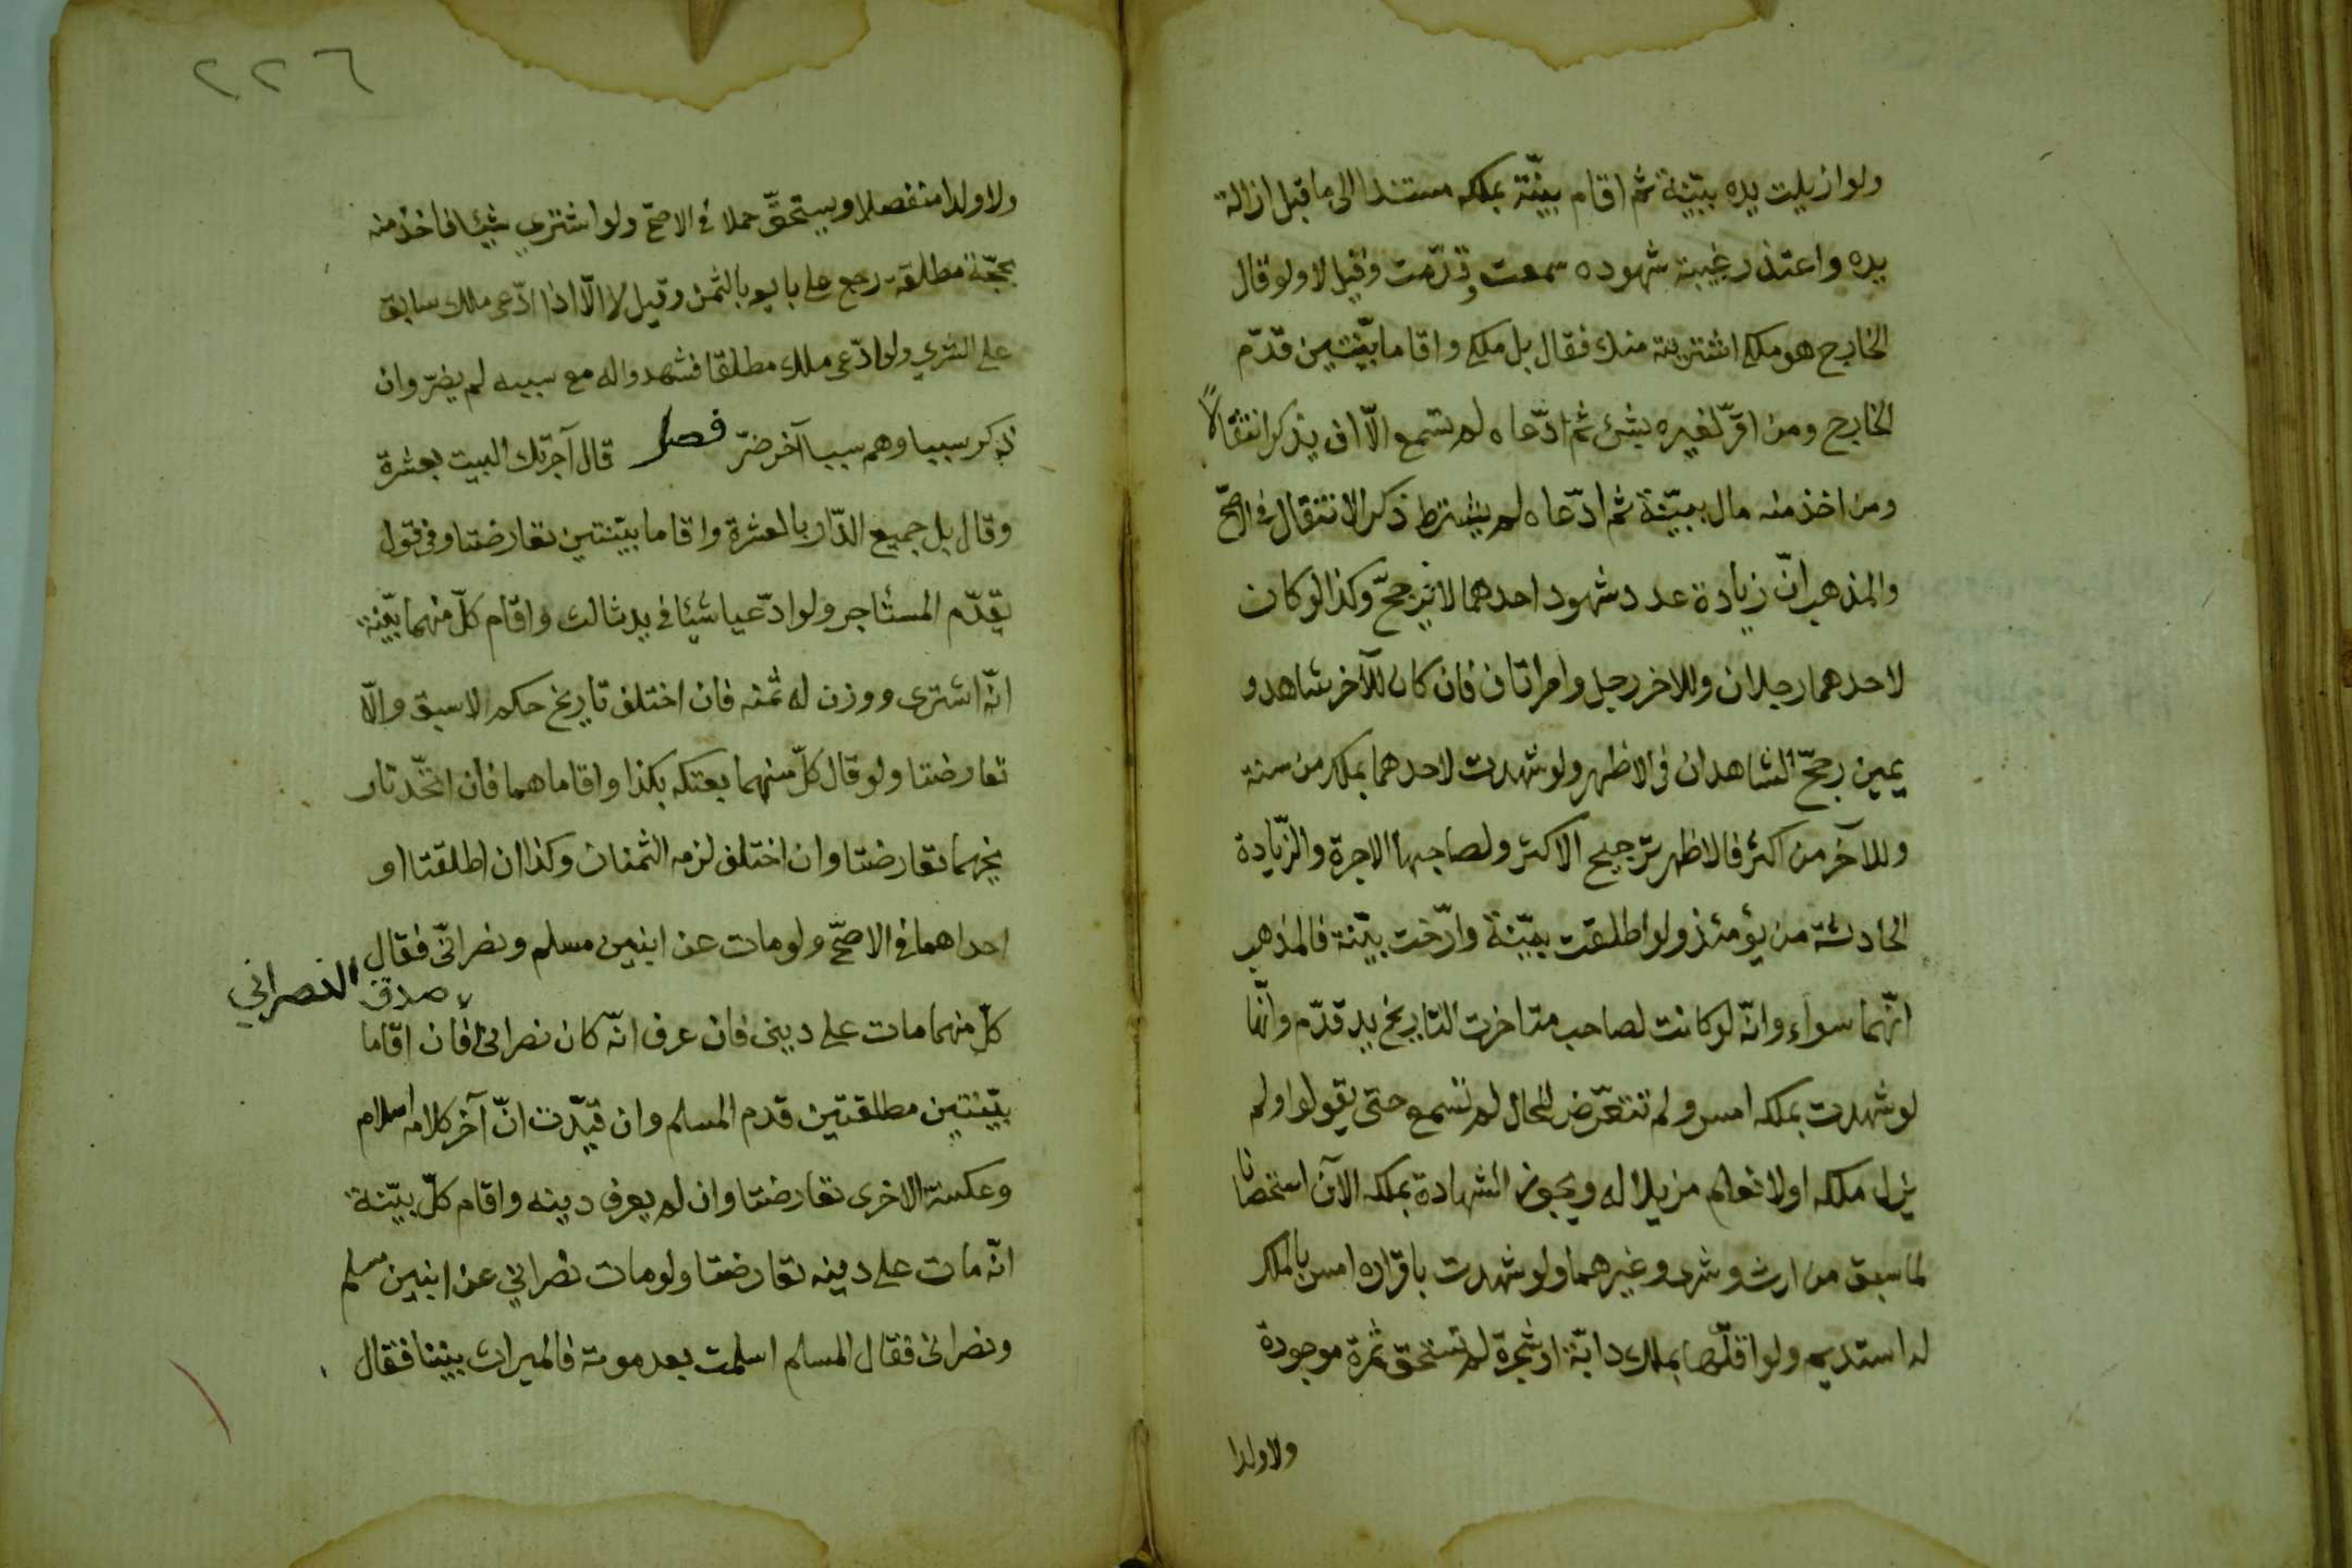 ولو ازيلت يده ببيّنة ثم اقام بيّنة بملكه مستندا الى ما قبل ازالة
يده واعتذر بغيبة شهوده سمعت وقدّمت وقيل لا ولو قال
الخارج هو ملكي اشتريته منك فقال بل ملكي واقاما بيّنتين قدّم
الخارج ومن اقرّ لغيره بشئ ثم ادّعاه لم تسمع الّا ان يذكر انتقالاً
ومن اخذ منه مال ببيّنة ثم ادّعاه لم يشترط ذكر الانتقال في الاصحّ
والمذهب انّ زيادة عدد شهود احدهما لا ترجحّ وكذا لو كان
لاحدهما رجلان وللاخر رجل وامراتان فان كان للآخر شاهد و
يمين رجحّ الشاهدان في الاظهر ولو شهدت لاحدهما بملك من سنة
وللآخر من اكثر فالاظهر ترجيح الاكثر ولصاحبها الاجرة والزّيادة
الحادثة من يؤمئذ ولو اطلقت بيّنة وارّخت بيّنة فالمذهب
انّهما سواء وانّه لو كانت لصاحب متاخرت التاريخ يد قدّم وانّها
لو شهدت بملكه امس ولم تتعرّض للحال لم تسمع حتى يقولوا ولم
يزل ملكه او لا نعلم مزيلا له ويجوز الشهادة بملكه الآن استصحابا
لما سبق من ارث وشرى وغيرهما ولو شهدت باقراره امس بالملك
له استديم ولو اقامها بملك دابّة او شجرة لم تستحق ثمرة موجودة
ولا ولدا
٢٢٦
ولا ولدا منفصلا ويستحقّ حملا في الاصحّ ولو اشترى شيئا فاخذ منه
بحجّة مطلقة رجع على بايعه بالثمن وقيل لا الّا اذا ادّعى ملك سابق
على الشرى ولو ادّعى ملك مطلقا فشهدوا له مع سببه لم يضرّ وان
ذكر سببا وهم سببا آخر ضرّ فصل قال آجرتك البيت بعشرة
وقال بل جميع الدّار بالعشرة واقاما بيّنتين تعارضتا وفي قول
يقدّم المستأجر ولو ادّعيا شيئا في يد ثالث واقام كلّ منهما بيّنة
انّه اشترى ووزن له ثمنه فان اختلف تاريخ حكم الاسبق والّا
تعارضتا ولو قال كلّ منهما بعتكه بكذا واقاماهما فان اتحّد تار
يخهما تعارضتا وان اختلف لزمه الثمنان وكذا ان اطلقتا او
احداهما في الاصحّ ولو مات عن ابنين مسلم ونصرانيّ فقال
صدق النصراني
كلّ منهما مات على ديني فان عرف انّه كان نصراني فان اقاما
بيّنتين مطلقتين قدم المسلم وان قيّدت انّ آخر كلامه اسلام
وعكسته الاخرى تعارضتا وان لم يعرف دينه واقام كلّ بيّنة
انّه مات على دينه تعارضتا ولو مات نصراني عن ابنين مسلم
ونصراني فقال المسلم اسلمت بعد موته فالميراث بيننا فقال